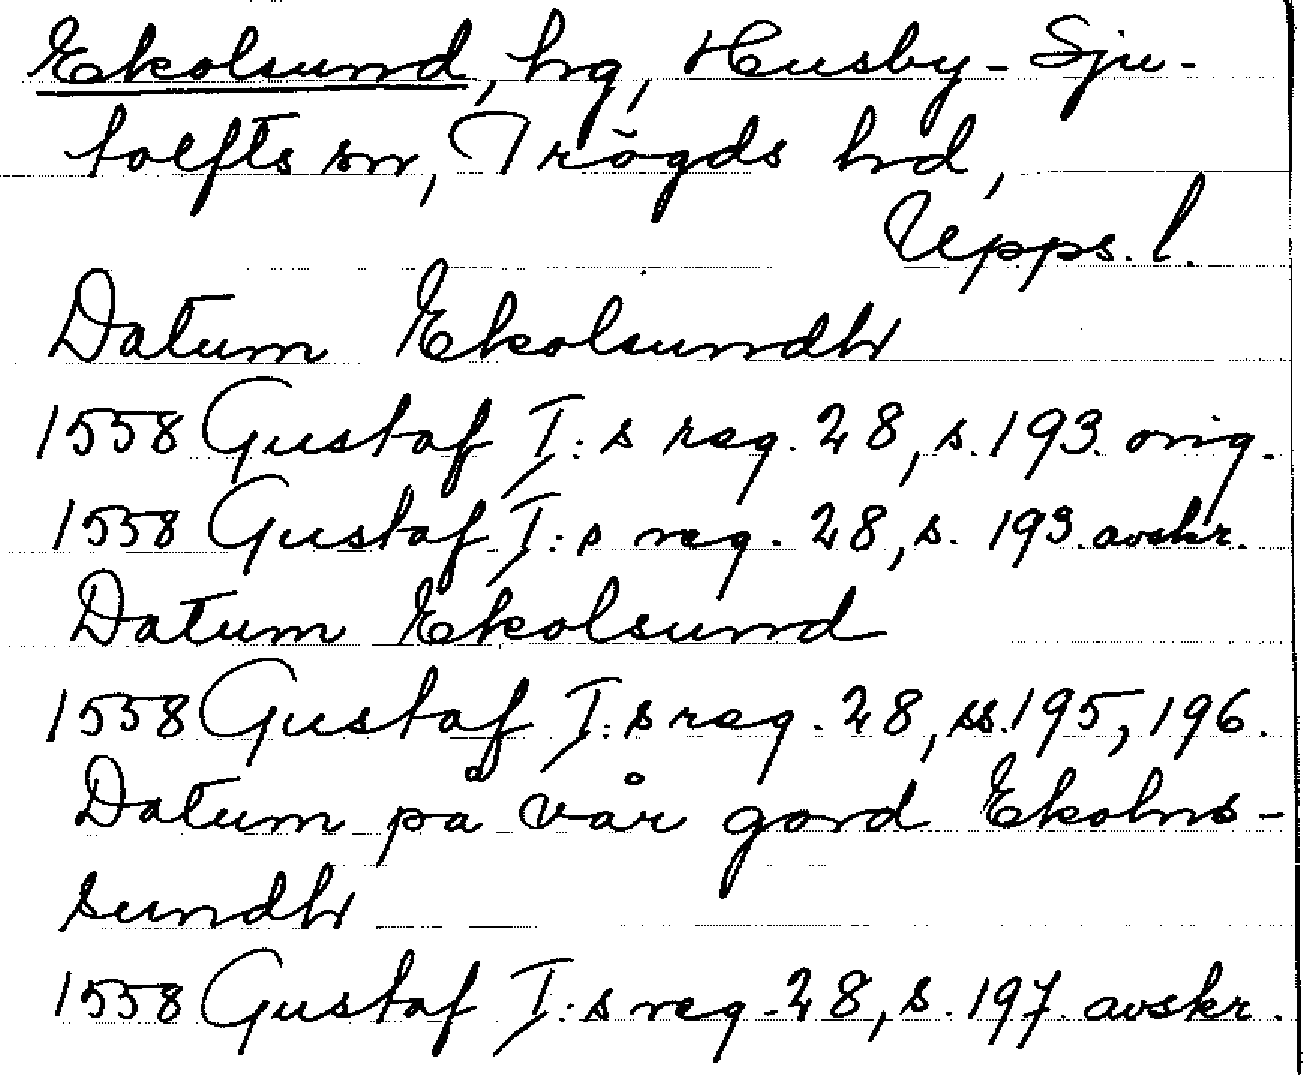 Ekolsund, hg, Husby-Sju-
tolfts sn, Trögds hd,
Upps. l.
Datum Ekolsundh
1558 Gustaf I:s reg. 28, s. 193. orig.
1558 Gustaf I:s reg. 28, s. 193. avskr.
Datum Ekolsund
1558 Gustaf I:s reg. 28, ss. 195, 196.
Datum på vår gord Ekolns-
sundh
1558 Gustaf I:s reg. 28, s. 197. avskr.